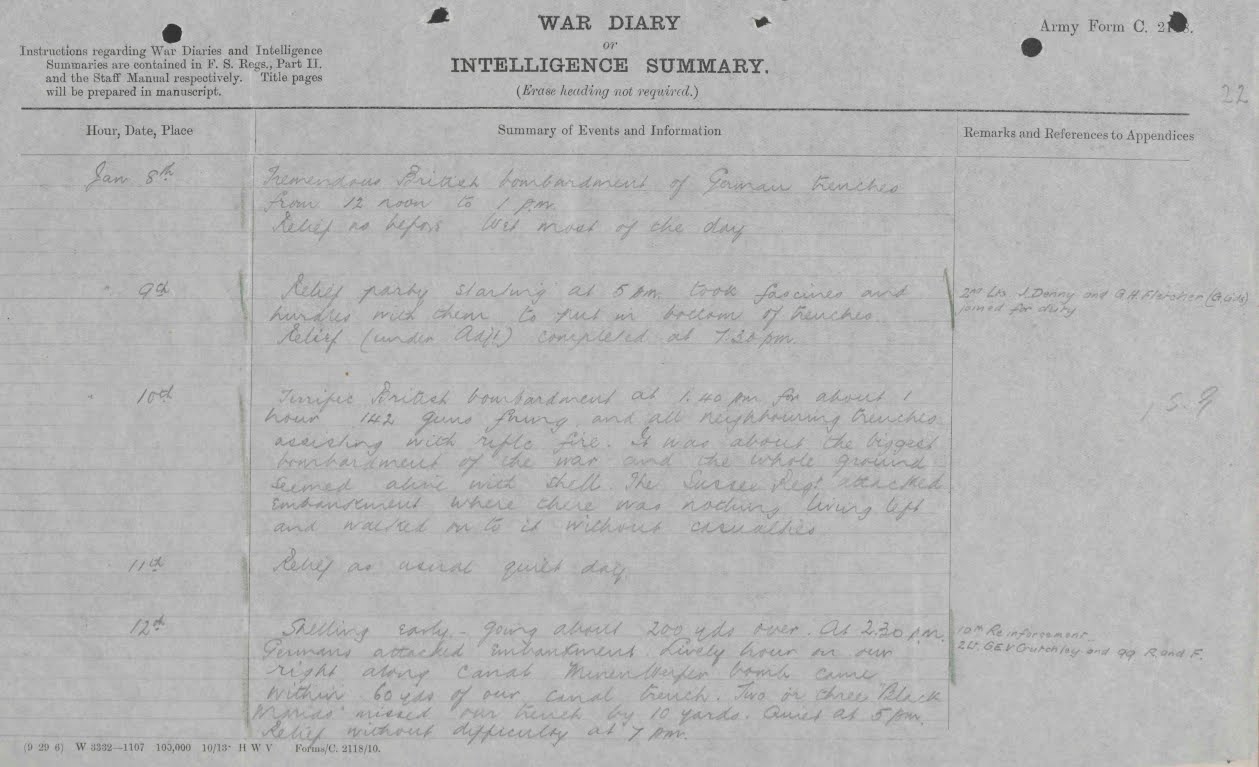 WAR DIARY
or
INTELLIGENCE SUMMARY.
(Erase heading not required.)
Army Form C. 2118.
Instructions regarding War Diaries and Intelligence
Summaries are contained in F. S. Regs., Part II.
and the Staff Manual respectively. Title pages
will be prepared in manuscript.
22
Hour, Date, Place
Summary of Events and Information
Remarks and References to Appendices
Jan 8th
Tremendous British bombardment of German trenches
from 12 noon to 1 p.m.
Relief as before Wet most of the day
" 9th
Relief party starting at 5 pm. took fascines and
hurdles with them to put in bottom of trenches.
Relief (under Adjt) completed at 7.30 pm.
2nd Lts J. Denny and G.H. Fletcher
joined for duty
" 10th
Terrific British bombardment at 1.40 pm for about 1
hour 142 guns firing and all neighbouring trenches
assisting with rifle fire. It was about the biggest
bombardment of the war and the whole ground
seemed alive with shell. The Sussex Regt attacked
Embankment where there was nothing living left
and walked on to it without casualties
11th
Relief as usual quiet day
12th
Shelling early - going about 200 yds over. At 2.30 p.m.
Germans attacked Embankment. Lively hour on our
right along Canal Minenwerfer bomb came
within 60 yds of our canal trench. Two or three "Black
Marias" missed our trench by 10 yards. Quiet at 5 pm.
Relief without difficulty at 7 pm.
10th Reinforcement
2Lt. G.E.V. Crutchley and 99 R and F.
(9 29 6) W 3332—1107 100,000 10/13 H W V Forms/C. 2118/10.